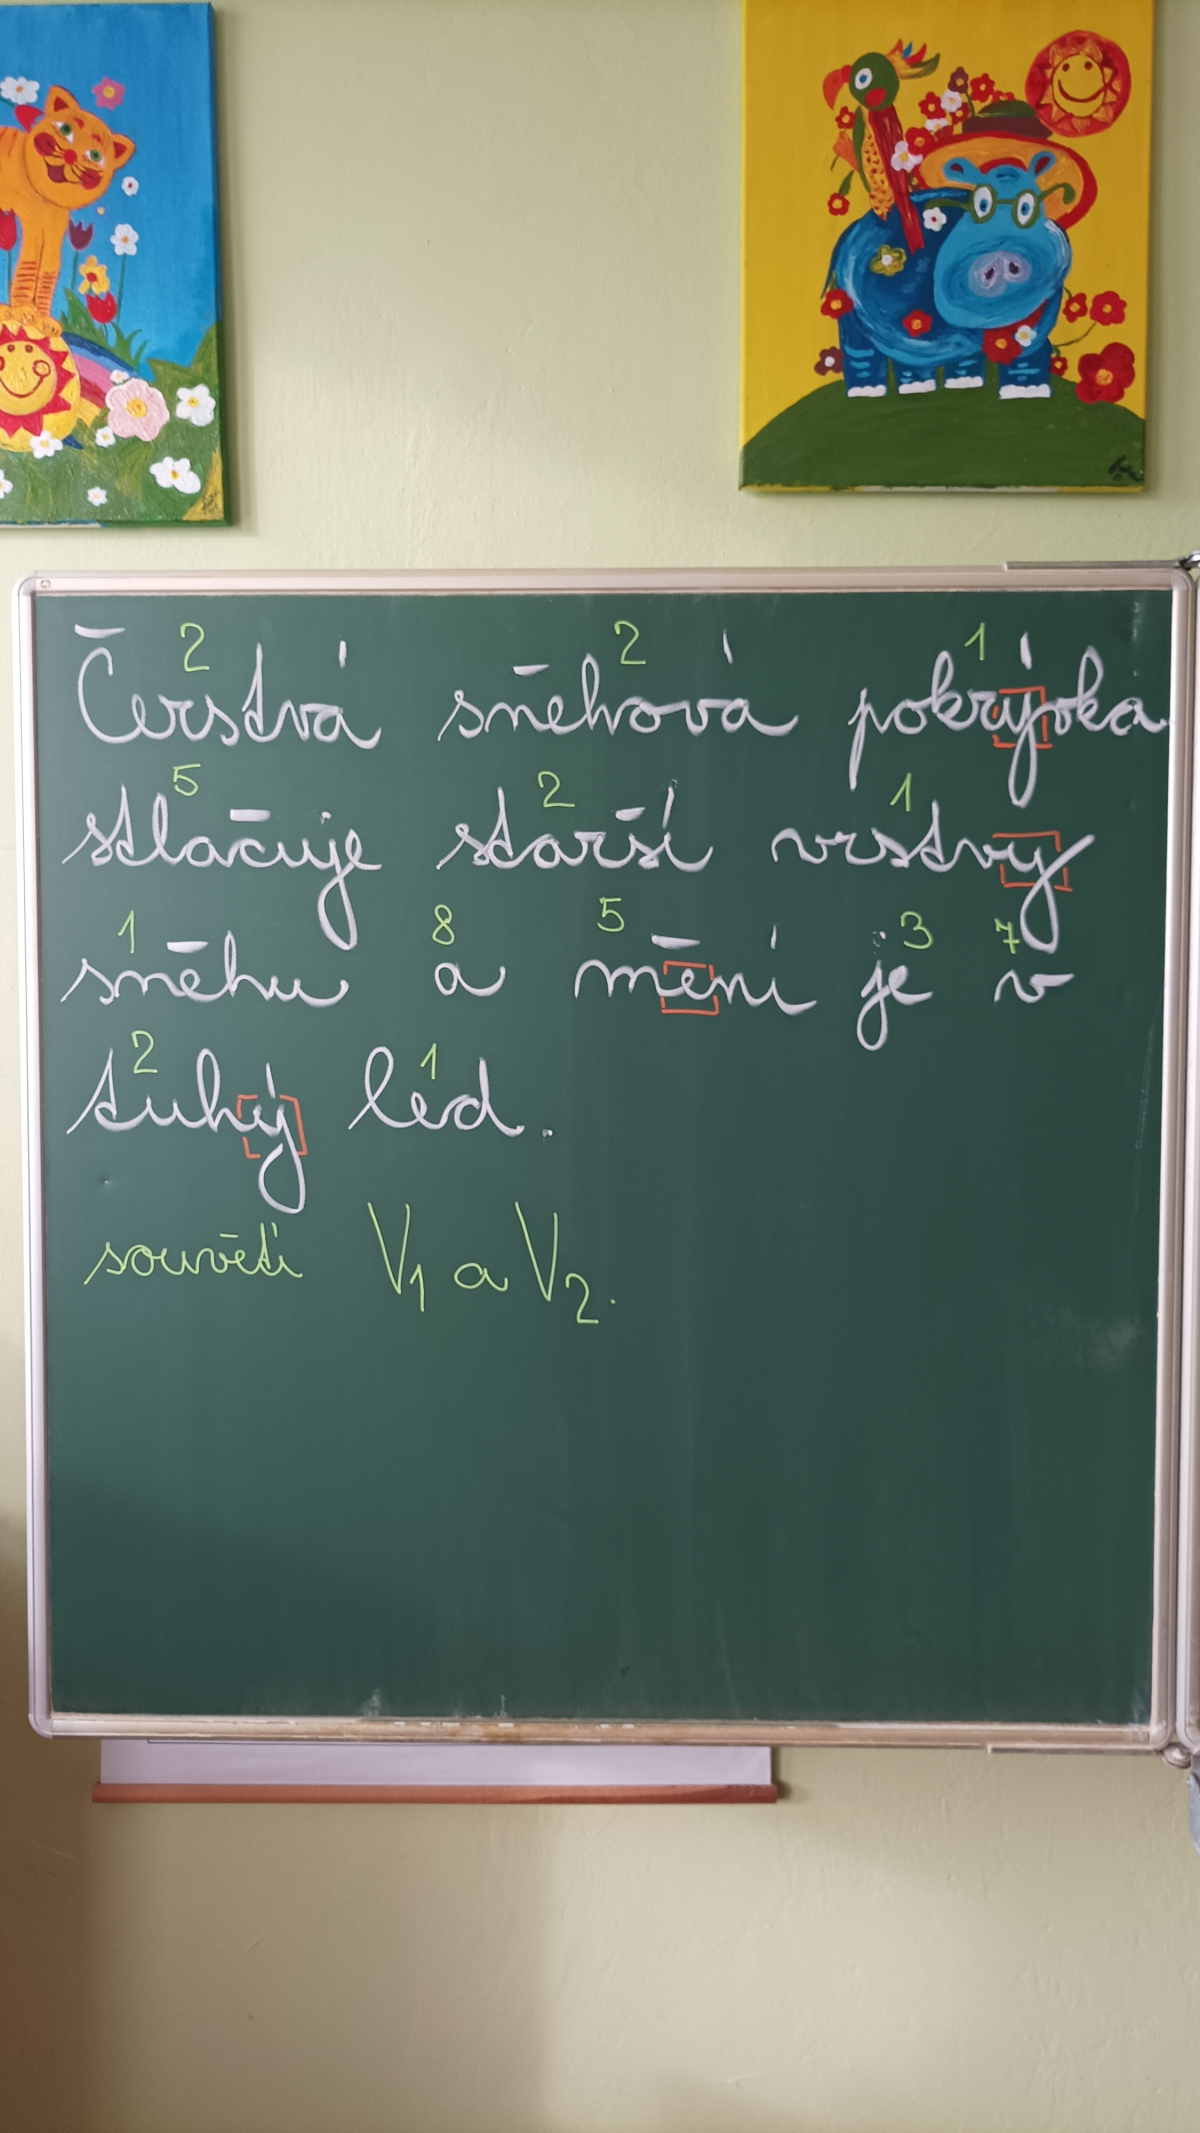 2 2 1
Čerstvá sněhová pokrývka
5 2 1
stlačuje starší vrstvy
1 8 5 3 7
sněhu a mění je v
2 1
tuhý led.
souvětí V1 a V2.